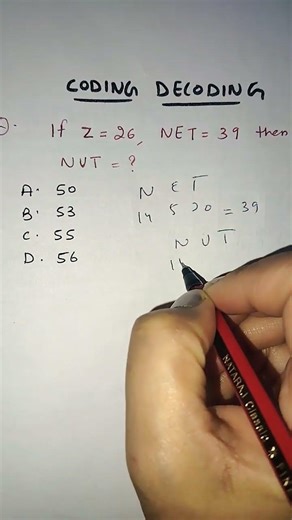 CODING DECODING
Q. If Z = 26, NET = 39 then
NUT = ?
A. 50
B. 53
C. 55
D. 56
N E T
14 5 20 = 39
N U T
NATARAJ